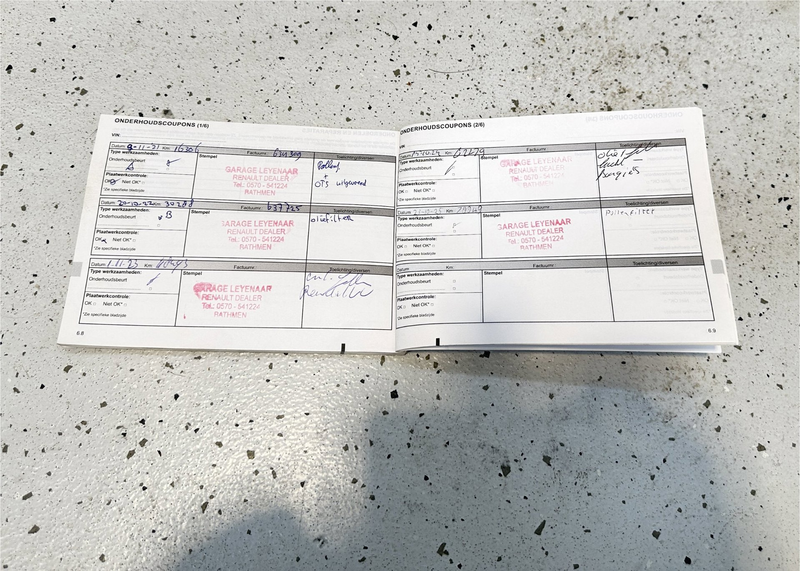 ONDERHOUDSCOUPONS (1/6)
VIN:
Datum: 9-11-21 Km: 16306 Factuurnr.:
Type werkzaamheden: Stempel Toelichting/diversen
Onderhoudsbeurt
A
Plaatwerkcontrole:
OK Niet OK*
*Zie specifieke bladzijde
GARAGE LEYENAAR
RENAULT DEALER
Tel.: 0570 - 541224
BATHMEN
+
OTS uitgevoerd
Datum: 20-10-22 Km: Factuurnr.: 637725
Type werkzaamheden: Stempel Toelichting/diversen
Onderhoudsbeurt
B
Plaatwerkcontrole:
OK Niet OK*
*Zie specifieke bladzijde
GARAGE LEYENAAR
RENAULT DEALER
Tel.: 0570 - 541224
BATHMEN
oliefilter
Datum: 1-11-23 Km: Factuurnr.:
Type werkzaamheden: Stempel Toelichting/diversen
Onderhoudsbeurt
Plaatwerkcontrole:
OK Niet OK*
*Zie specifieke bladzijde
GARAGE LEYENAAR
RENAULT DEALER
Tel.: 0570 - 541224
BATHMEN
6.8
ONDERHOUDSCOUPONS (2/6)
VIN:
Datum: Km: Factuurnr.:
Type werkzaamheden: Stempel Toelichting/diversen
Onderhoudsbeurt
Plaatwerkcontrole:
OK Niet OK*
*Zie specifieke bladzijde
GARAGE LEYENAAR
RENAULT DEALER
Tel.: 0570 - 541224
BATHMEN
Datum: Km: Factuurnr.:
Type werkzaamheden: Stempel Toelichting/diversen
Onderhoudsbeurt
Plaatwerkcontrole:
OK Niet OK*
*Zie specifieke bladzijde
GARAGE LEYENAAR
RENAULT DEALER
Tel.: 0570 - 541224
BATHMEN
Pollenfilter
Datum: Km: Factuurnr.:
Type werkzaamheden: Stempel Toelichting/diversen
Onderhoudsbeurt
Plaatwerkcontrole:
OK Niet OK*
*Zie specifieke bladzijde
6.9